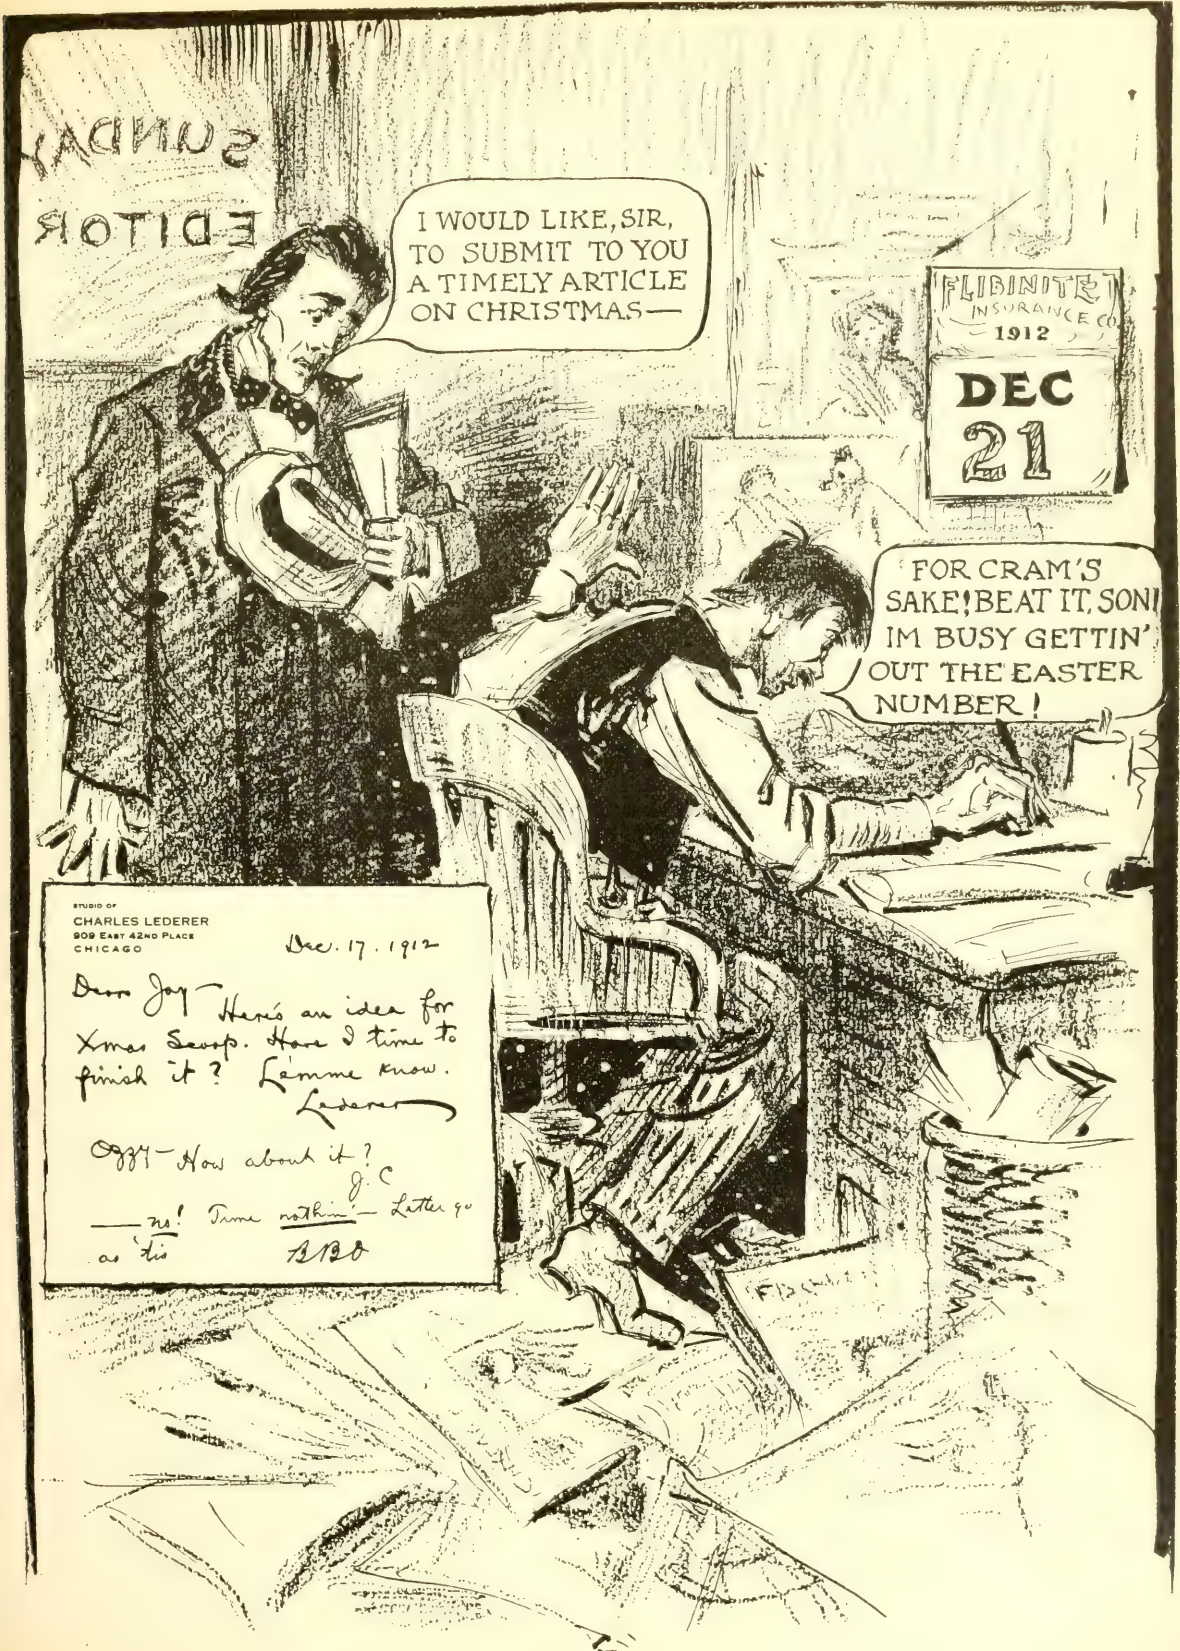 SUNDAY
EDITOR
I WOULD LIKE, SIR,
TO SUBMIT TO YOU
A TIMELY ARTICLE
ON CHRISTMAS—
FLIBINITE
INSURANCE CO.
1912
DEC
21
FOR CRAM'S
SAKE! BEAT IT, SON!
IM BUSY GETTIN'
OUT THE EASTER
NUMBER!
STUDIO OF
CHARLES LEDERER
909 EAST 42ND PLACE
CHICAGO
Dec. 17. 1912
Dear Jay—
Here's an idea for
Xmas Scoop. Have I time to
finish it? Lemme know.
Lederer
Ozzy— How about it?
J. C
— no! Time nothin'— Letter go
as 'tis
BBO